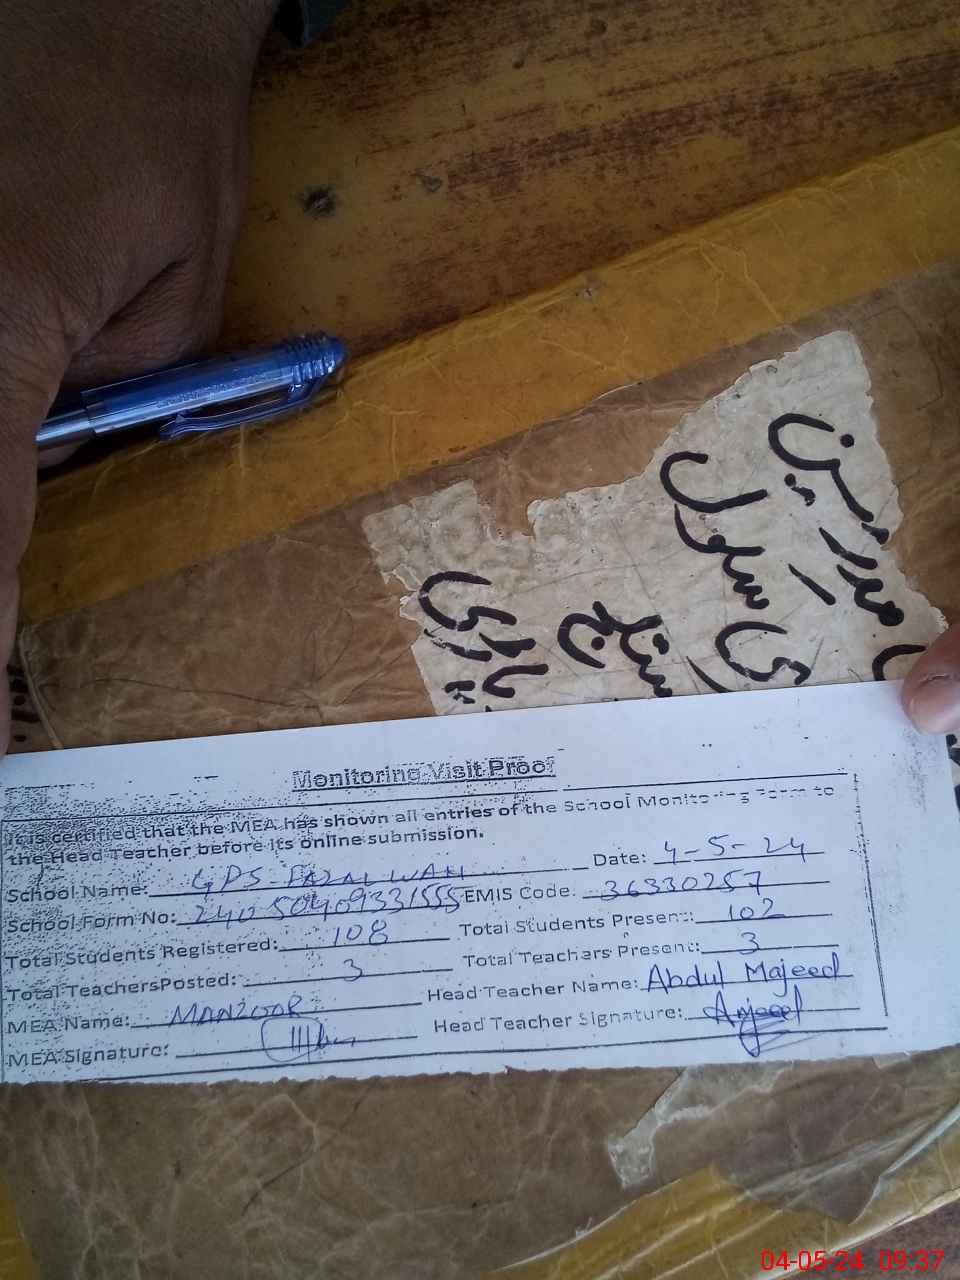 مدرسین
سکول
ستلج
Monitoring Visit Proof
It is certified that the MEA has shown all entries of the School Monitoring Form to
the Head Teacher before its online submission.
School Name: GPS FAZAL WAH Date: 4-5-24
School Form No: EMIS Code: 36330257
Total Students Registered: 108 Total Students Present: 102
Total TeachersPosted: 3 Total Teachers Present: 3
MEA Name: MANZOOR Head Teacher Name: Abdul Majeed
MEA Signature: Head Teacher Signature:
04-05-24 09:37